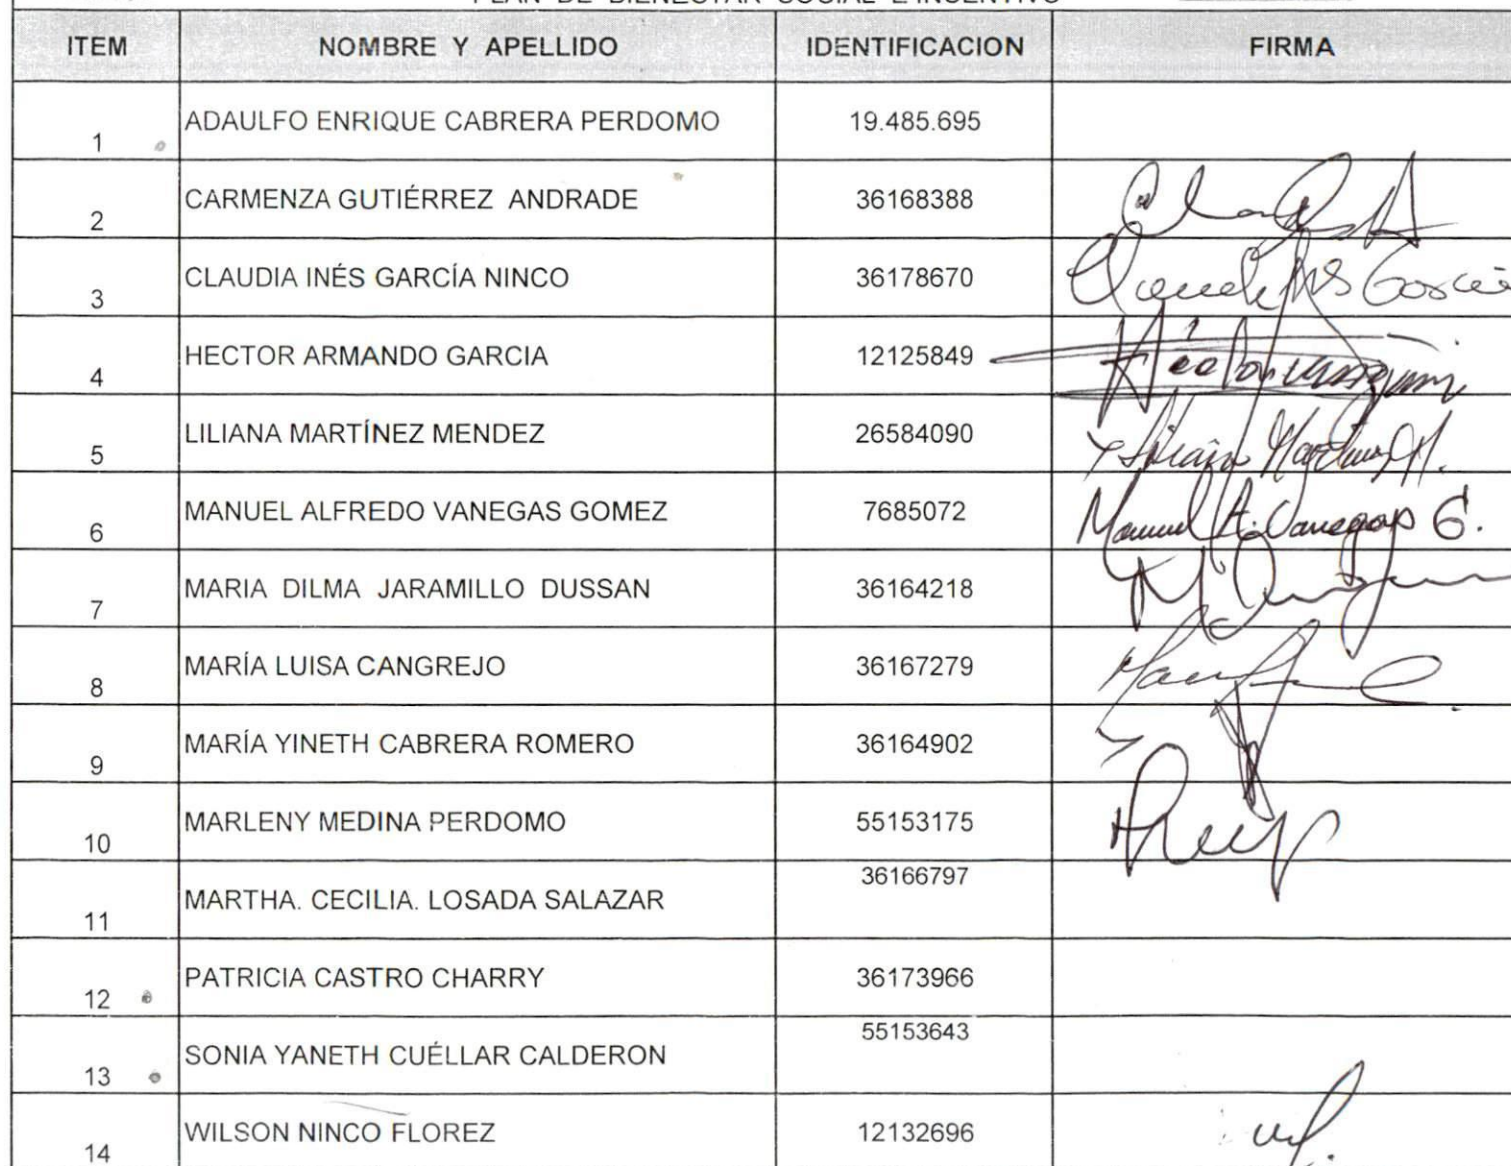 PLAN DE BIENESTAR SOCIAL E INCENTIVO
ITEM NOMBRE Y APELLIDO IDENTIFICACION FIRMA
1 ADAULFO ENRIQUE CABRERA PERDOMO 19.485.695
2 CARMENZA GUTIÉRREZ ANDRADE 36168388
3 CLAUDIA INÉS GARCÍA NINCO 36178670
4 HECTOR ARMANDO GARCIA 12125849
5 LILIANA MARTÍNEZ MENDEZ 26584090
6 MANUEL ALFREDO VANEGAS GOMEZ 7685072 Manuel A. Vanegas G.
7 MARIA DILMA JARAMILLO DUSSAN 36164218
8 MARÍA LUISA CANGREJO 36167279
9 MARÍA YINETH CABRERA ROMERO 36164902
10 MARLENY MEDINA PERDOMO 55153175
11 MARTHA. CECILIA. LOSADA SALAZAR 36166797
12 PATRICIA CASTRO CHARRY 36173966
13 SONIA YANETH CUÉLLAR CALDERON 55153643
14 WILSON NINCO FLOREZ 12132696